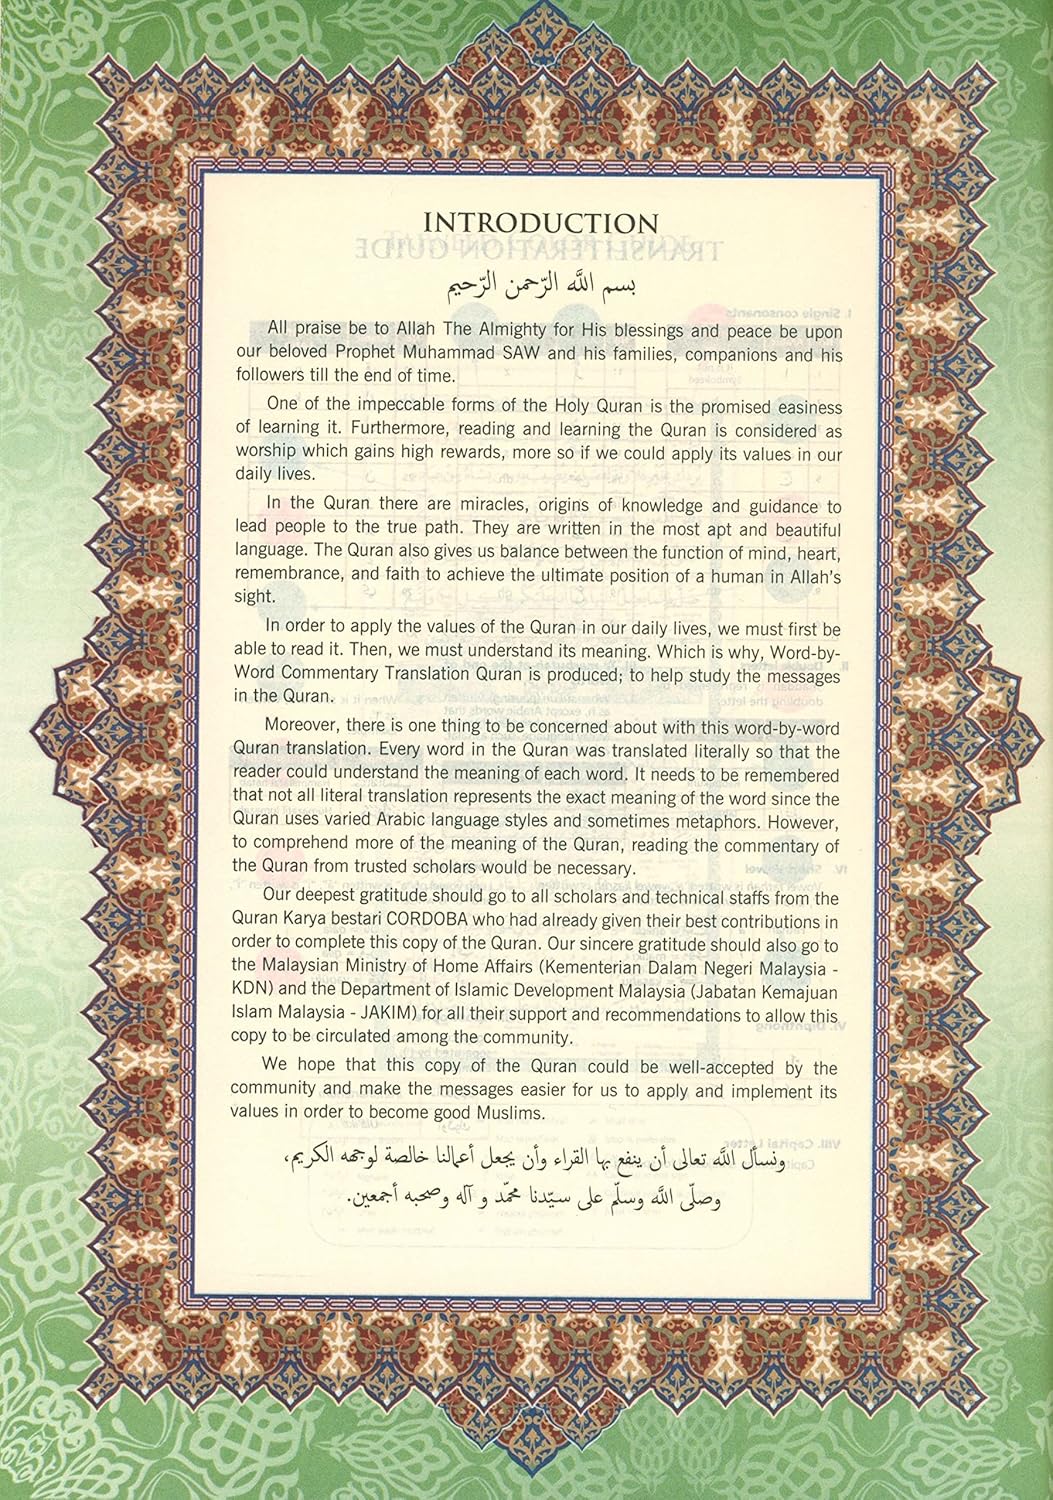 INTRODUCTION
بسم اللّه الرّحمن الرّحيم
All praise be to Allah The Almighty for His blessings and peace be upon
our beloved Prophet Muhammad SAW and his families, companions and his
followers till the end of time.
One of the impeccable forms of the Holy Quran is the promised easiness
of learning it. Furthermore, reading and learning the Quran is considered as
worship which gains high rewards, more so if we could apply its values in our
daily lives.
In the Quran there are miracles, origins of knowledge and guidance to
lead people to the true path. They are written in the most apt and beautiful
language. The Quran also gives us balance between the function of mind, heart,
remembrance, and faith to achieve the ultimate position of a human in Allah's
sight.
In order to apply the values of the Quran in our daily lives, we must first be
able to read it. Then, we must understand its meaning. Which is why, Word-by-
Word Commentary Translation Quran is produced; to help study the messages
in the Quran.
Moreover, there is one thing to be concerned about with this word-by-word
Quran translation. Every word in the Quran was translated literally so that the
reader could understand the meaning of each word. It needs to be remembered
that not all literal translation represents the exact meaning of the word since the
Quran uses varied Arabic language styles and sometimes metaphors. However,
to comprehend more of the meaning of the Quran, reading the commentary of
the Quran from trusted scholars would be necessary.
Our deepest gratitude should go to all scholars and technical staffs from the
Quran Karya bestari CORDOBA who had already given their best contributions in
order to complete this copy of the Quran. Our sincere gratitude should also go to
the Malaysian Ministry of Home Affairs (Kementerian Dalam Negeri Malaysia -
KDN) and the Department of Islamic Development Malaysia (Jabatan Kemajuan
Islam Malaysia - JAKIM) for all their support and recommendations to allow this
copy to be circulated among the community.
We hope that this copy of the Quran could be well-accepted by the
community and make the messages easier for us to apply and implement its
values in order to become good Muslims.
ونسأل اللّه تعالى أن ينفع بها القراء وأن يجعل أعمالنا خالصة لوجهه الكريم،
وصلّى اللّه وسلّم على سيّدنا محمّد و آله وصحبه أجمعين.